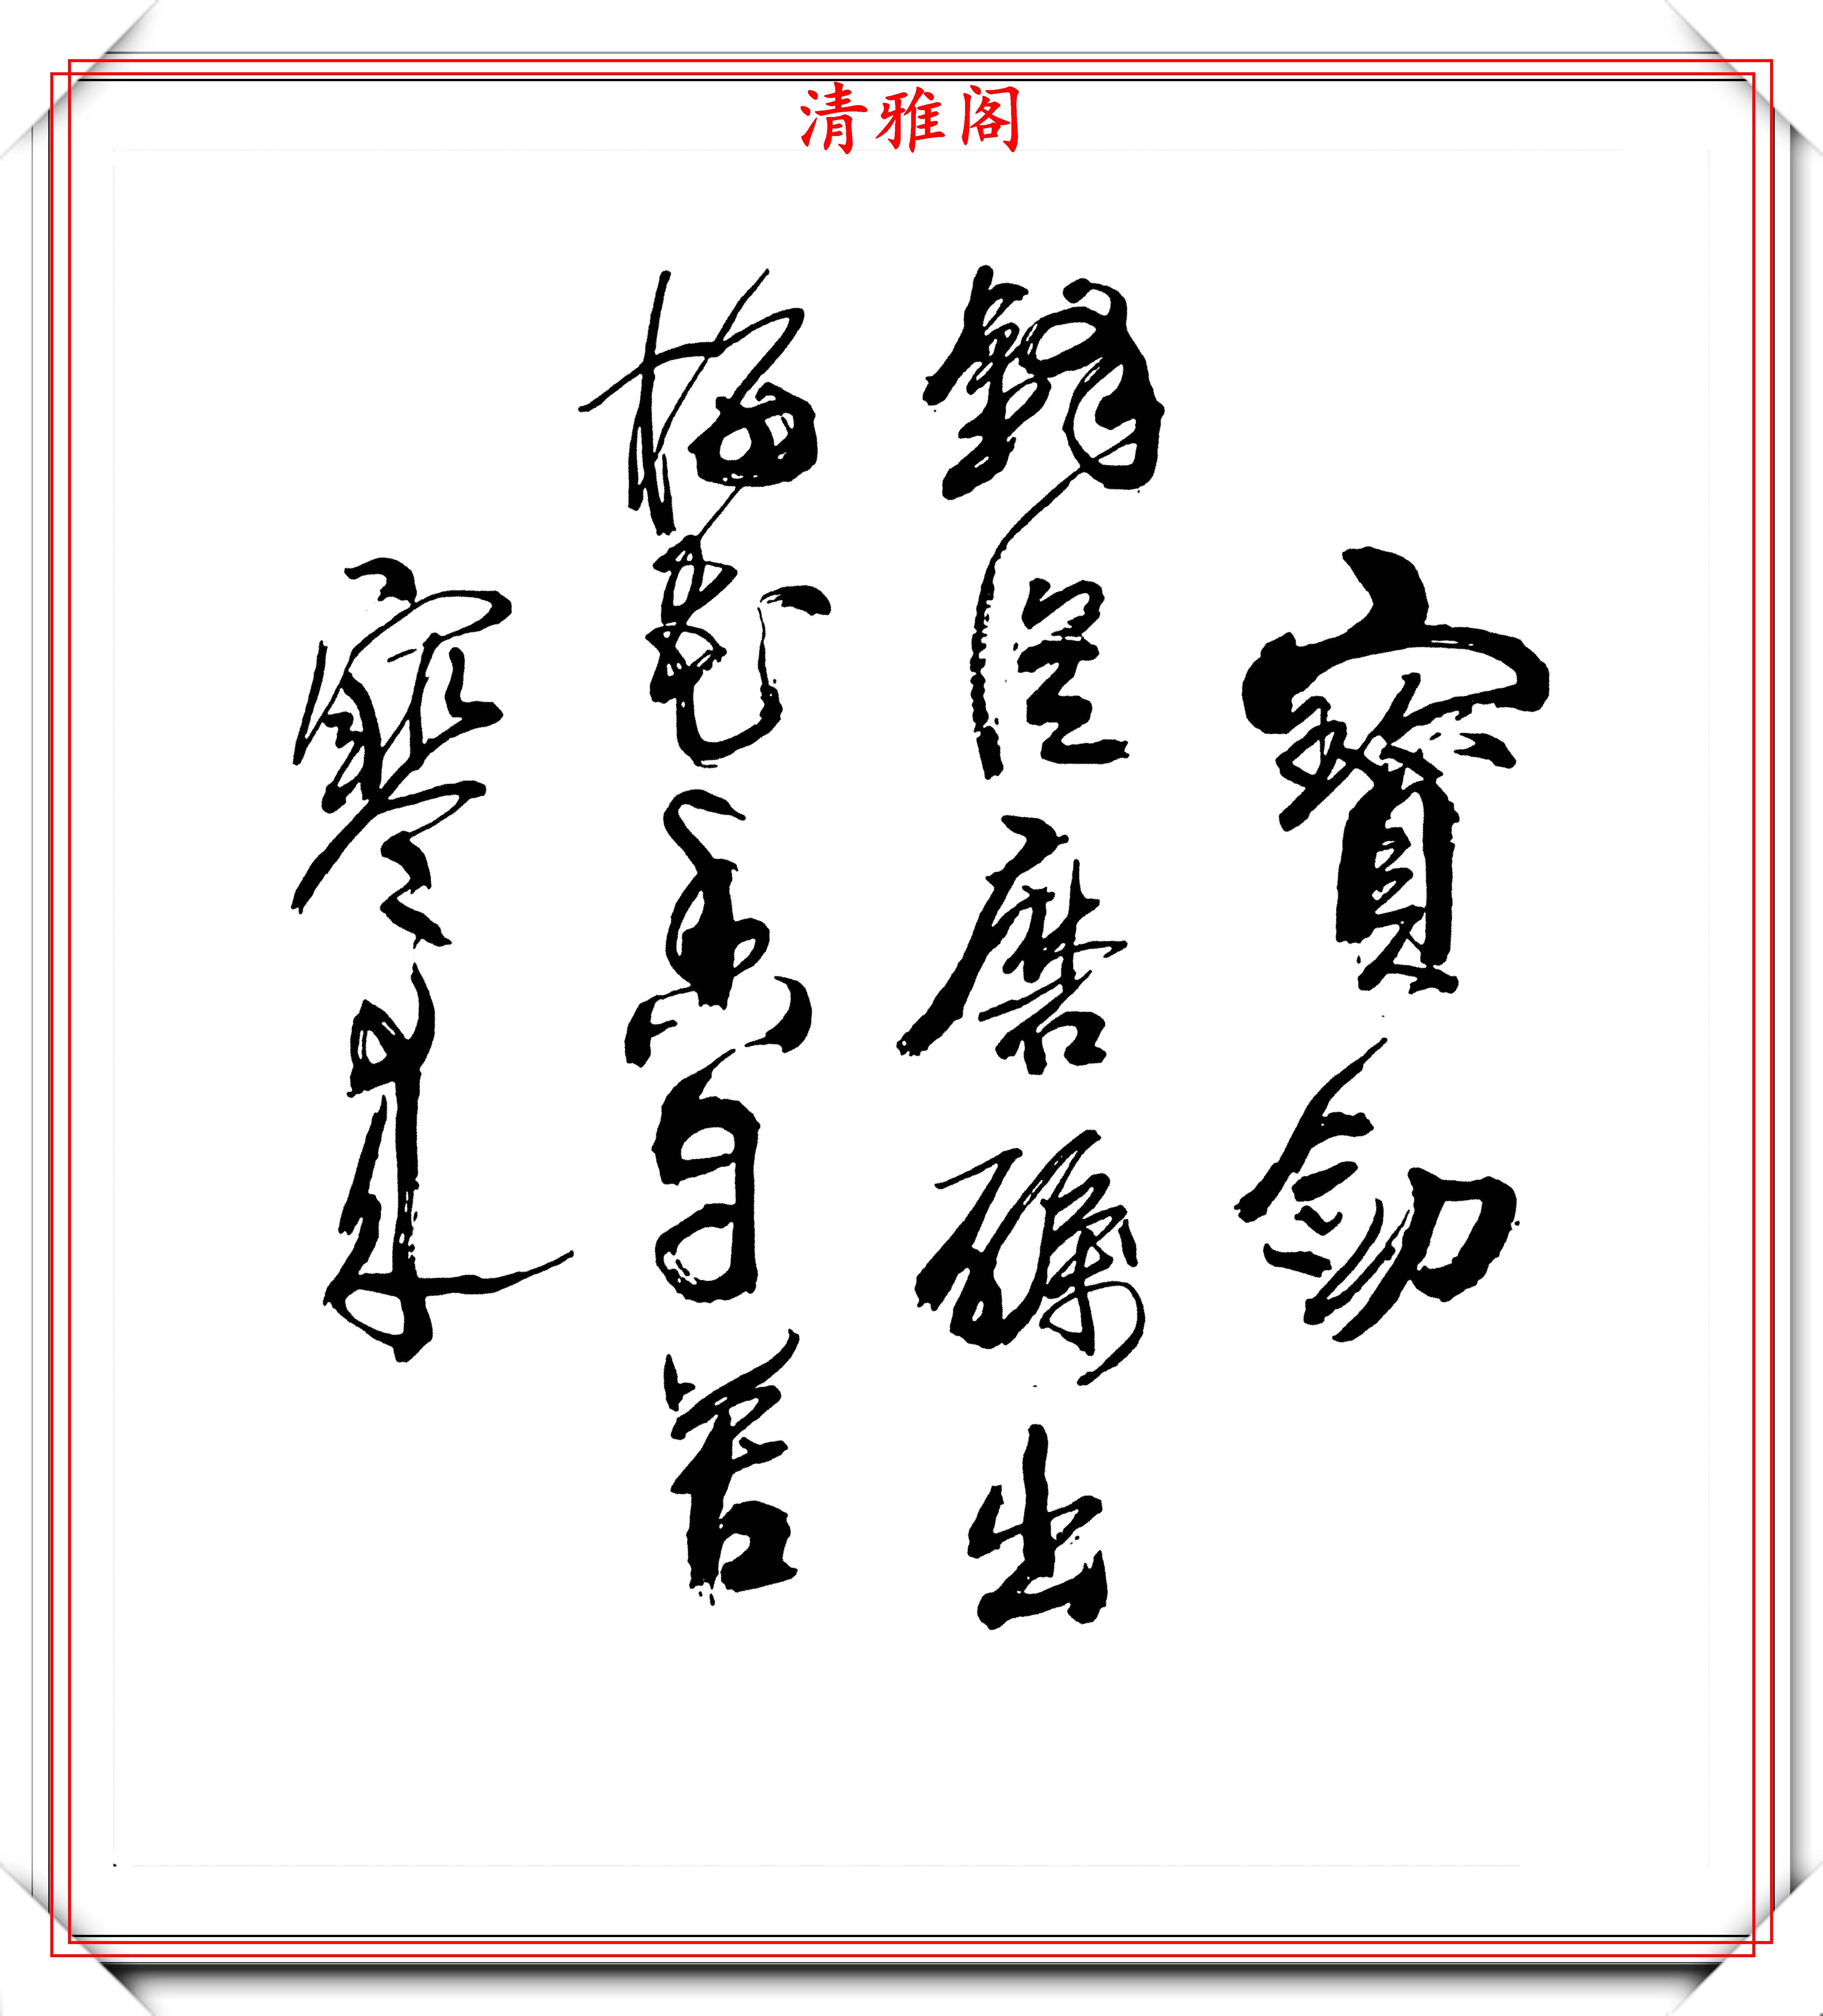 清雅阁
寶劍
鋒從磨礪出
梅花香自苦
寒來